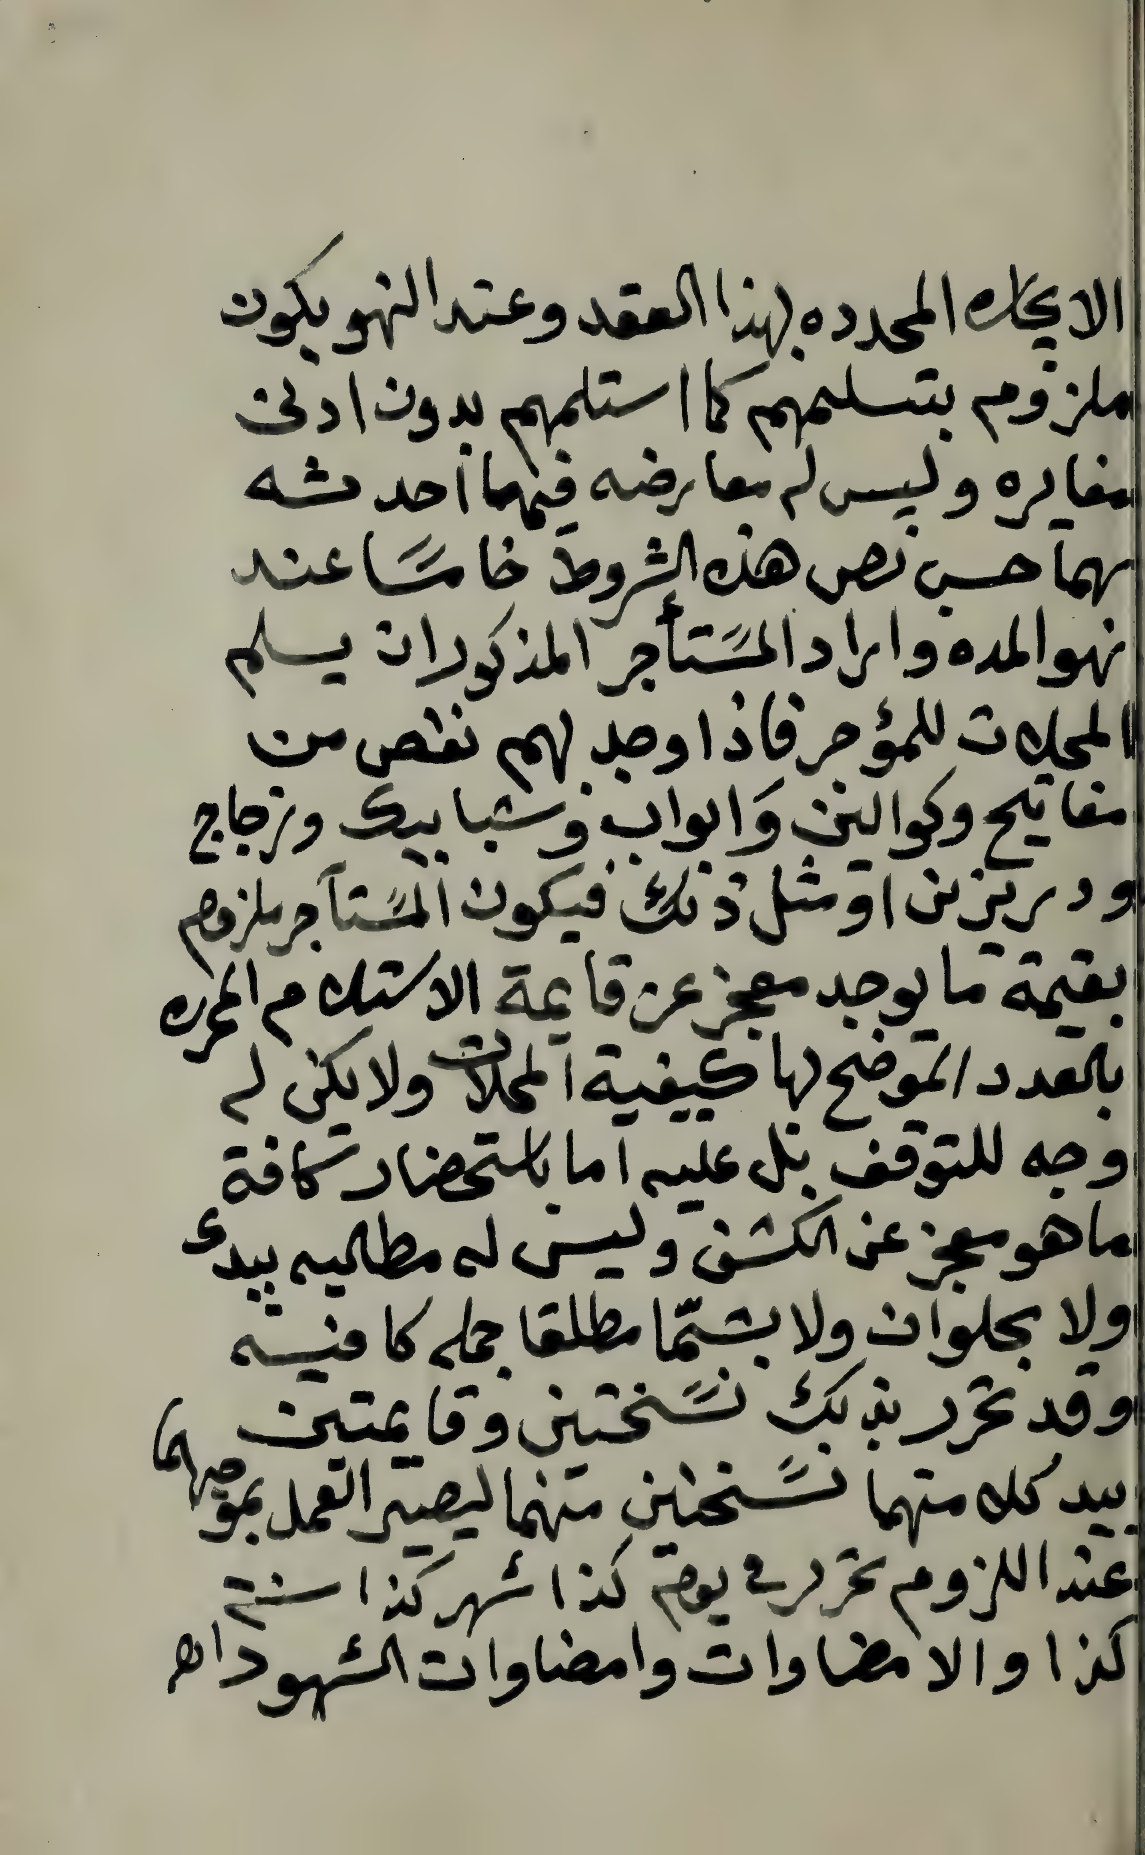 الايجاره المحدده بهذا العقد وعند النهو يكون
ملزوم بتسليمهم كما استلمهم بدون ادنى
مغايره وليس له معارضه فيهما احدثه
بهما حسب نص هذه الشروط خامسًا عند
نهو المده واراد المستأجر المذكور ان يسلم
المحلات للمؤجر فاذا وجد لهم نقص من
مفاتيح وكوالين وابواب وشبابيك وزجاج
ودربزين او مثل ذلك فيكون المستأجر ملزوم
بقيمة ما يوجد معجز عن قايمة الاستلام المحرره
بالعدد الموضح لها كيفية المحلات ولا يكن له
وجه للتوقف بل عليه اما باستحضار كافة
ما هو معجز عن الكشف وليس له مطالبه بيدك
ولا بحلوان ولا بشئ ما مطلقا جمله كافيته
وقد تحرر بذلك نسختين وقايمتين
بيد كل منهما نسختين منهما ليصير العمل بموجبهما
عند اللزوم تحرر في يوم كذا شهر كذا سنة
كذا والامضاوات وامضاوات الشهود اه